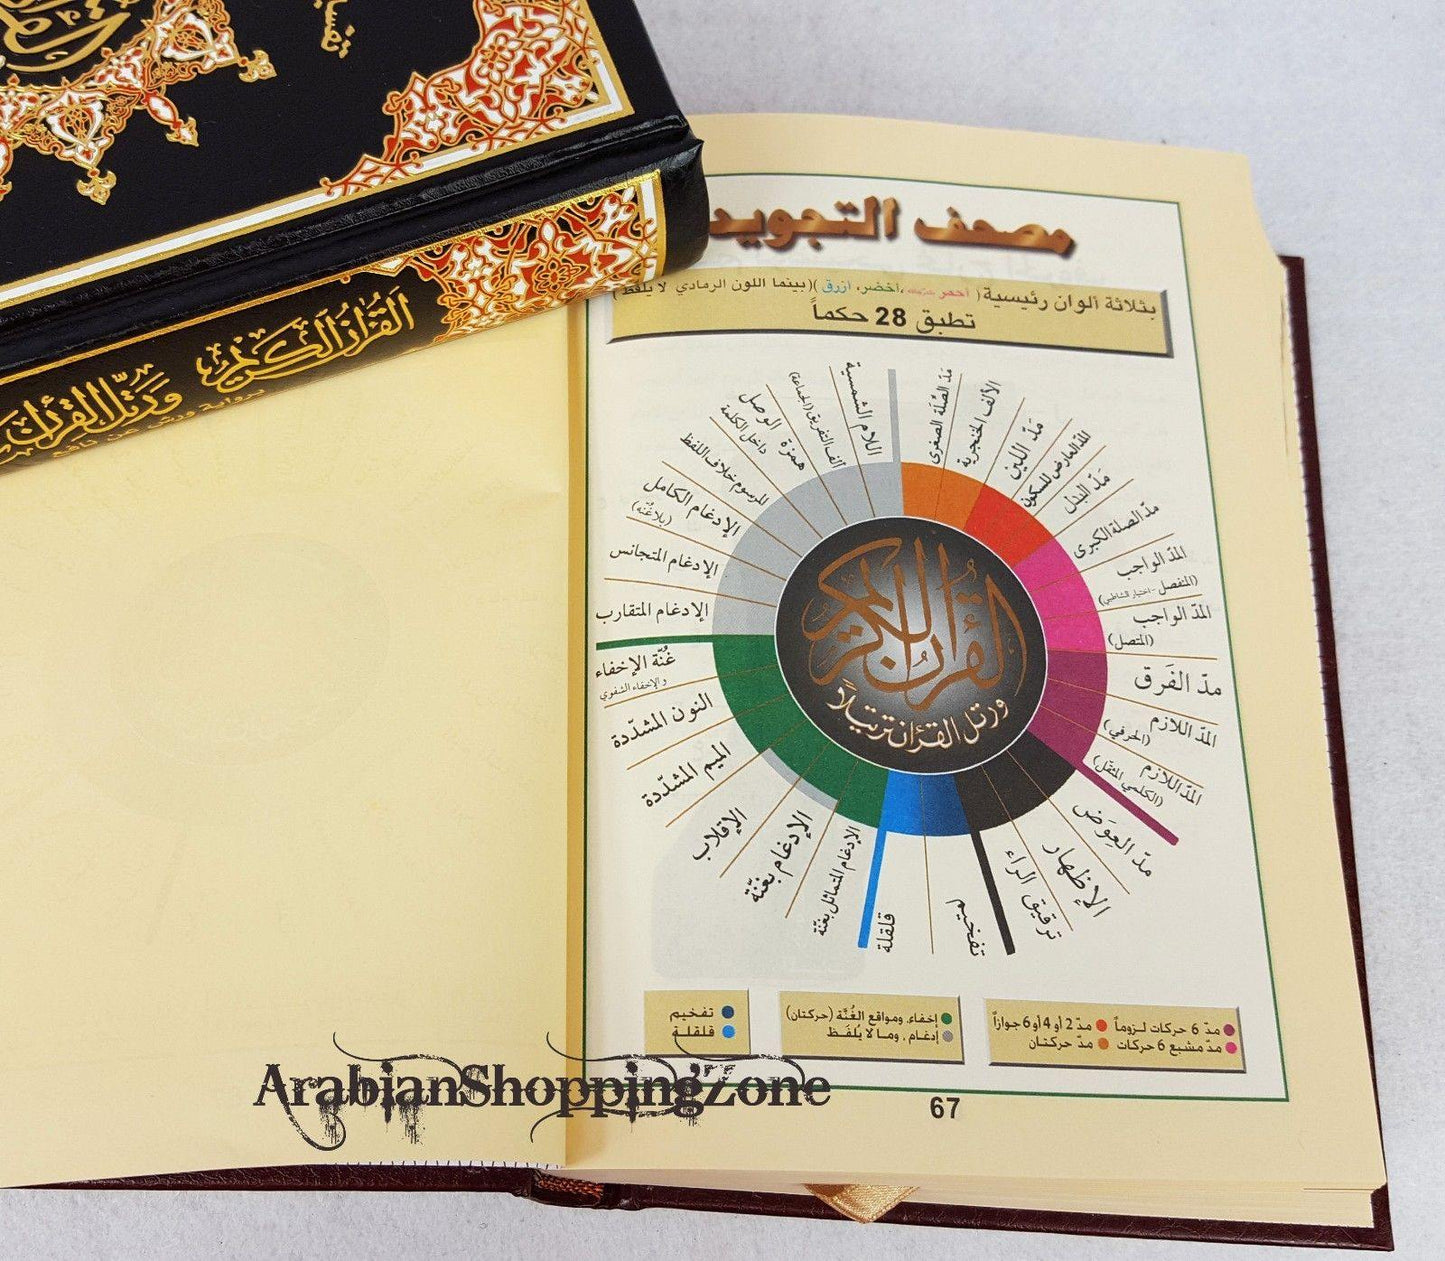 القرآن الكريم
ورتل القرآن
مصحف التجويد
بثلاثة ألوان رئيسية ( أحمر ، أخضر، أزرق )(بينما اللون الرمادي لا يلفظ)
تطبق 28 حكماً
مَدّ الصِّلة الصغرى
الألف الخنجرية
مَدّ اللين
المدّ العارض للسكون
مَدّ البَدَل
مدّ الصلة الكبرى
المدّ الواجب
(المنفصل - اختيار الشاطبي)
المدّ الواجب
(المتصل)
مدّ الفَرق
المدّ اللازم
(الحرفي)
المدّ اللازم
(الكلمي المثقل)
مدّ العِوَض
الإظهار
ترقيق الراء
تفخيم
قلقلة
الإدغام المتماثل بغنّة
الإدغام بغنّة
الإقلاب
الميم المشدّدة
النون المشدّدة
غُنّة الإخفاء
والإخفاء الشفوي
الإدغام المتقارب
الإدغام المتجانس
الإدغام الكامل
(بلا غُنّه)
المرسوم خلاف اللفظ
همزة الوصل
داخل الكلمة
ألف التفريق (الجماعة)
اللام الشمسية
القرآن الكريم
ورتل القرآن ترتيلاً
مدّ 6 حركات لزوماً مدّ 2 أو 4 أو 6 جوازاً
مدّ مشبع 6 حركات مدّ حركتان
إخفاء، ومواقع الغُنَّة (حركتان)
إدغام ، وما لا يُلفَظ
تفخيم
قلقلة
ArabianShoppingZone
67